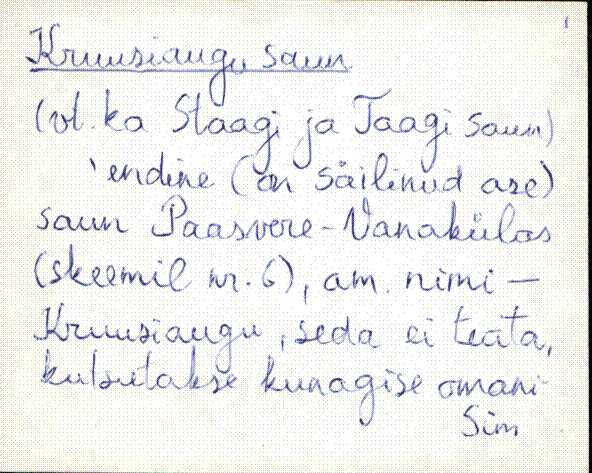 1
Kruusiaugu saun
(vt. ka Staagi ja Taagi saun)
'endine (on säilinud ase)
saun Paasvere-Vanakülas
(skeemil nr. 6), am. nimi —
Kruusiaugu, seda ei teata,
kutsutakse kunagise omani-
Sim